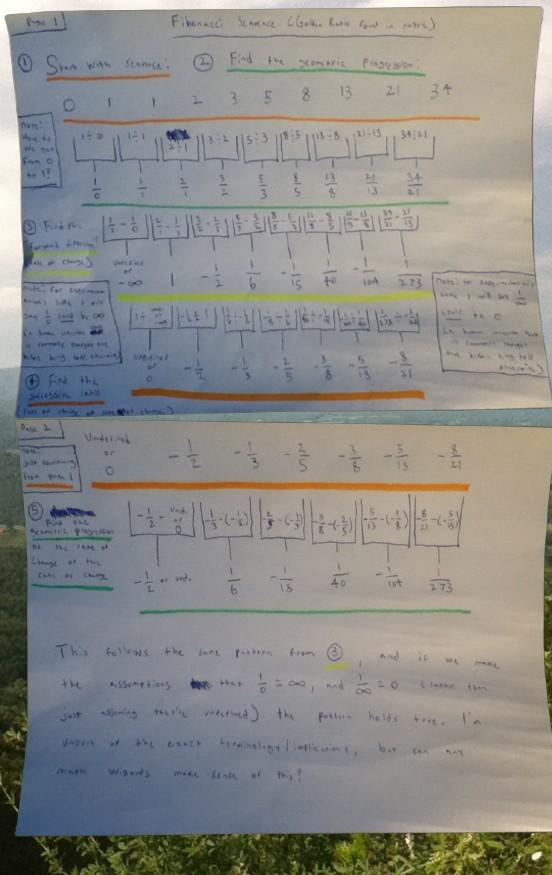 Page 1
Fibonacci Sequence (Golden Ratio found in nature)
① Start With Sequence: ② Find the geometric progression:
0 1 1 2 3 5 8 13 21 34
Note:
How do
we get
from 0
to 1?
1÷0 1÷1 2÷1 3÷2 5÷3 8÷5 13÷8 21÷13 34÷21
1/0 1/1 2/1 3/2 5/3 8/5 13/8 21/13 34/21
③ Find the
"forward difference"
(rate of change)
1/1 - 1/0 2/1 - 1/1 3/2 - 2/1 5/3 - 3/2 8/5 - 5/3 13/8 - 8/5 21/13 - 13/8 34/21 - 21/13
undefined
or
-∞ 1 -1/2 1/6 -1/15 1/40 -1/104 1/273
Note: for
I will
say 1/0 could be ∞
before being told otherwise)
Note:
I will say 1/∞
could be 0
that before being told
otherwise)
undefined
or
0 -1/2 -1/3 -2/5 -3/8 -5/13 -8/21
④ Find the
succession ratio
(rate of change of rate of change)
Page 2
Note:
Just continuing
from page 1
Undefined
or
0 -1/2 -1/3 -2/5 -3/8 -5/13 -8/21
⑤ Find the
geometric progression
of the rate of
change of the
rate of change
-1/2 - und. or 0 -1/3-(-1/2) -2/5-(-1/3) -3/8-(-2/5) -5/13-(-3/8) -8/21-(-5/13)
-1/2 or und. 1/6 -1/15 1/40 -1/104 1/273
This follows the same pattern from ③, and if we make
the assumptions that 1/0 = ∞, and 1/∞ = 0 (rather than
just assuming they're undefined) the pattern holds true. I'm
unsure of the exact terminology/implications, but can any
math wizards make sense of this?